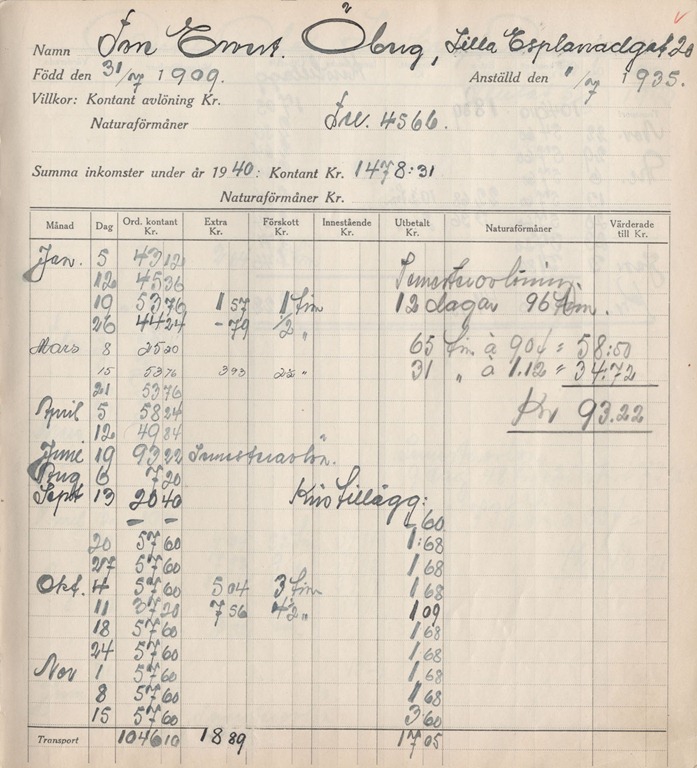 Namn Evert. Öberg, Lilla Esplanadgat 20
Född den 31/07 1909. Anställd den 11/07 1935.
Villkor: Kontant avlöning Kr.
Naturaförmåner Irv. 4566.
Summa inkomster under år 1940: Kontant Kr. 1478:31
Naturaförmåner Kr.
Månad Dag Ord. kontant Kr. Extra Kr. Förskott Kr. Innestående Kr. Utbetalt Kr. Naturaförmåner Värderade till Kr.
Jan. 5 43 12
12 45 36
19 53 76 1 57 1 tim 12 dagar 96 tim.
26 44 24 - 79 1/2 "
Mars 8 25 20 65 tim à 90 = 58:50
15 53 76 3 93 31 " à 1.12 = 34.72
21 53 76
April 5 58 24 Kr 93.22
12 49 84
Juni 19 93 22 Semesteravlön.
Aug 6 7 20
Sept 13 20 40 Kristillägg:
- - -60
20 57 60 1:68
27 57 60 1 68
Okt. 4 57 60 5 04 3 tim 1 68
11 37 20 7 56 4 1/2 " 1 09
18 57 60 1 68
24 57 60 1 68
Nov 1 57 60 1 68
8 57 60 1 68
15 57 60 3:60
Transport 1046 10 18 89 17 05